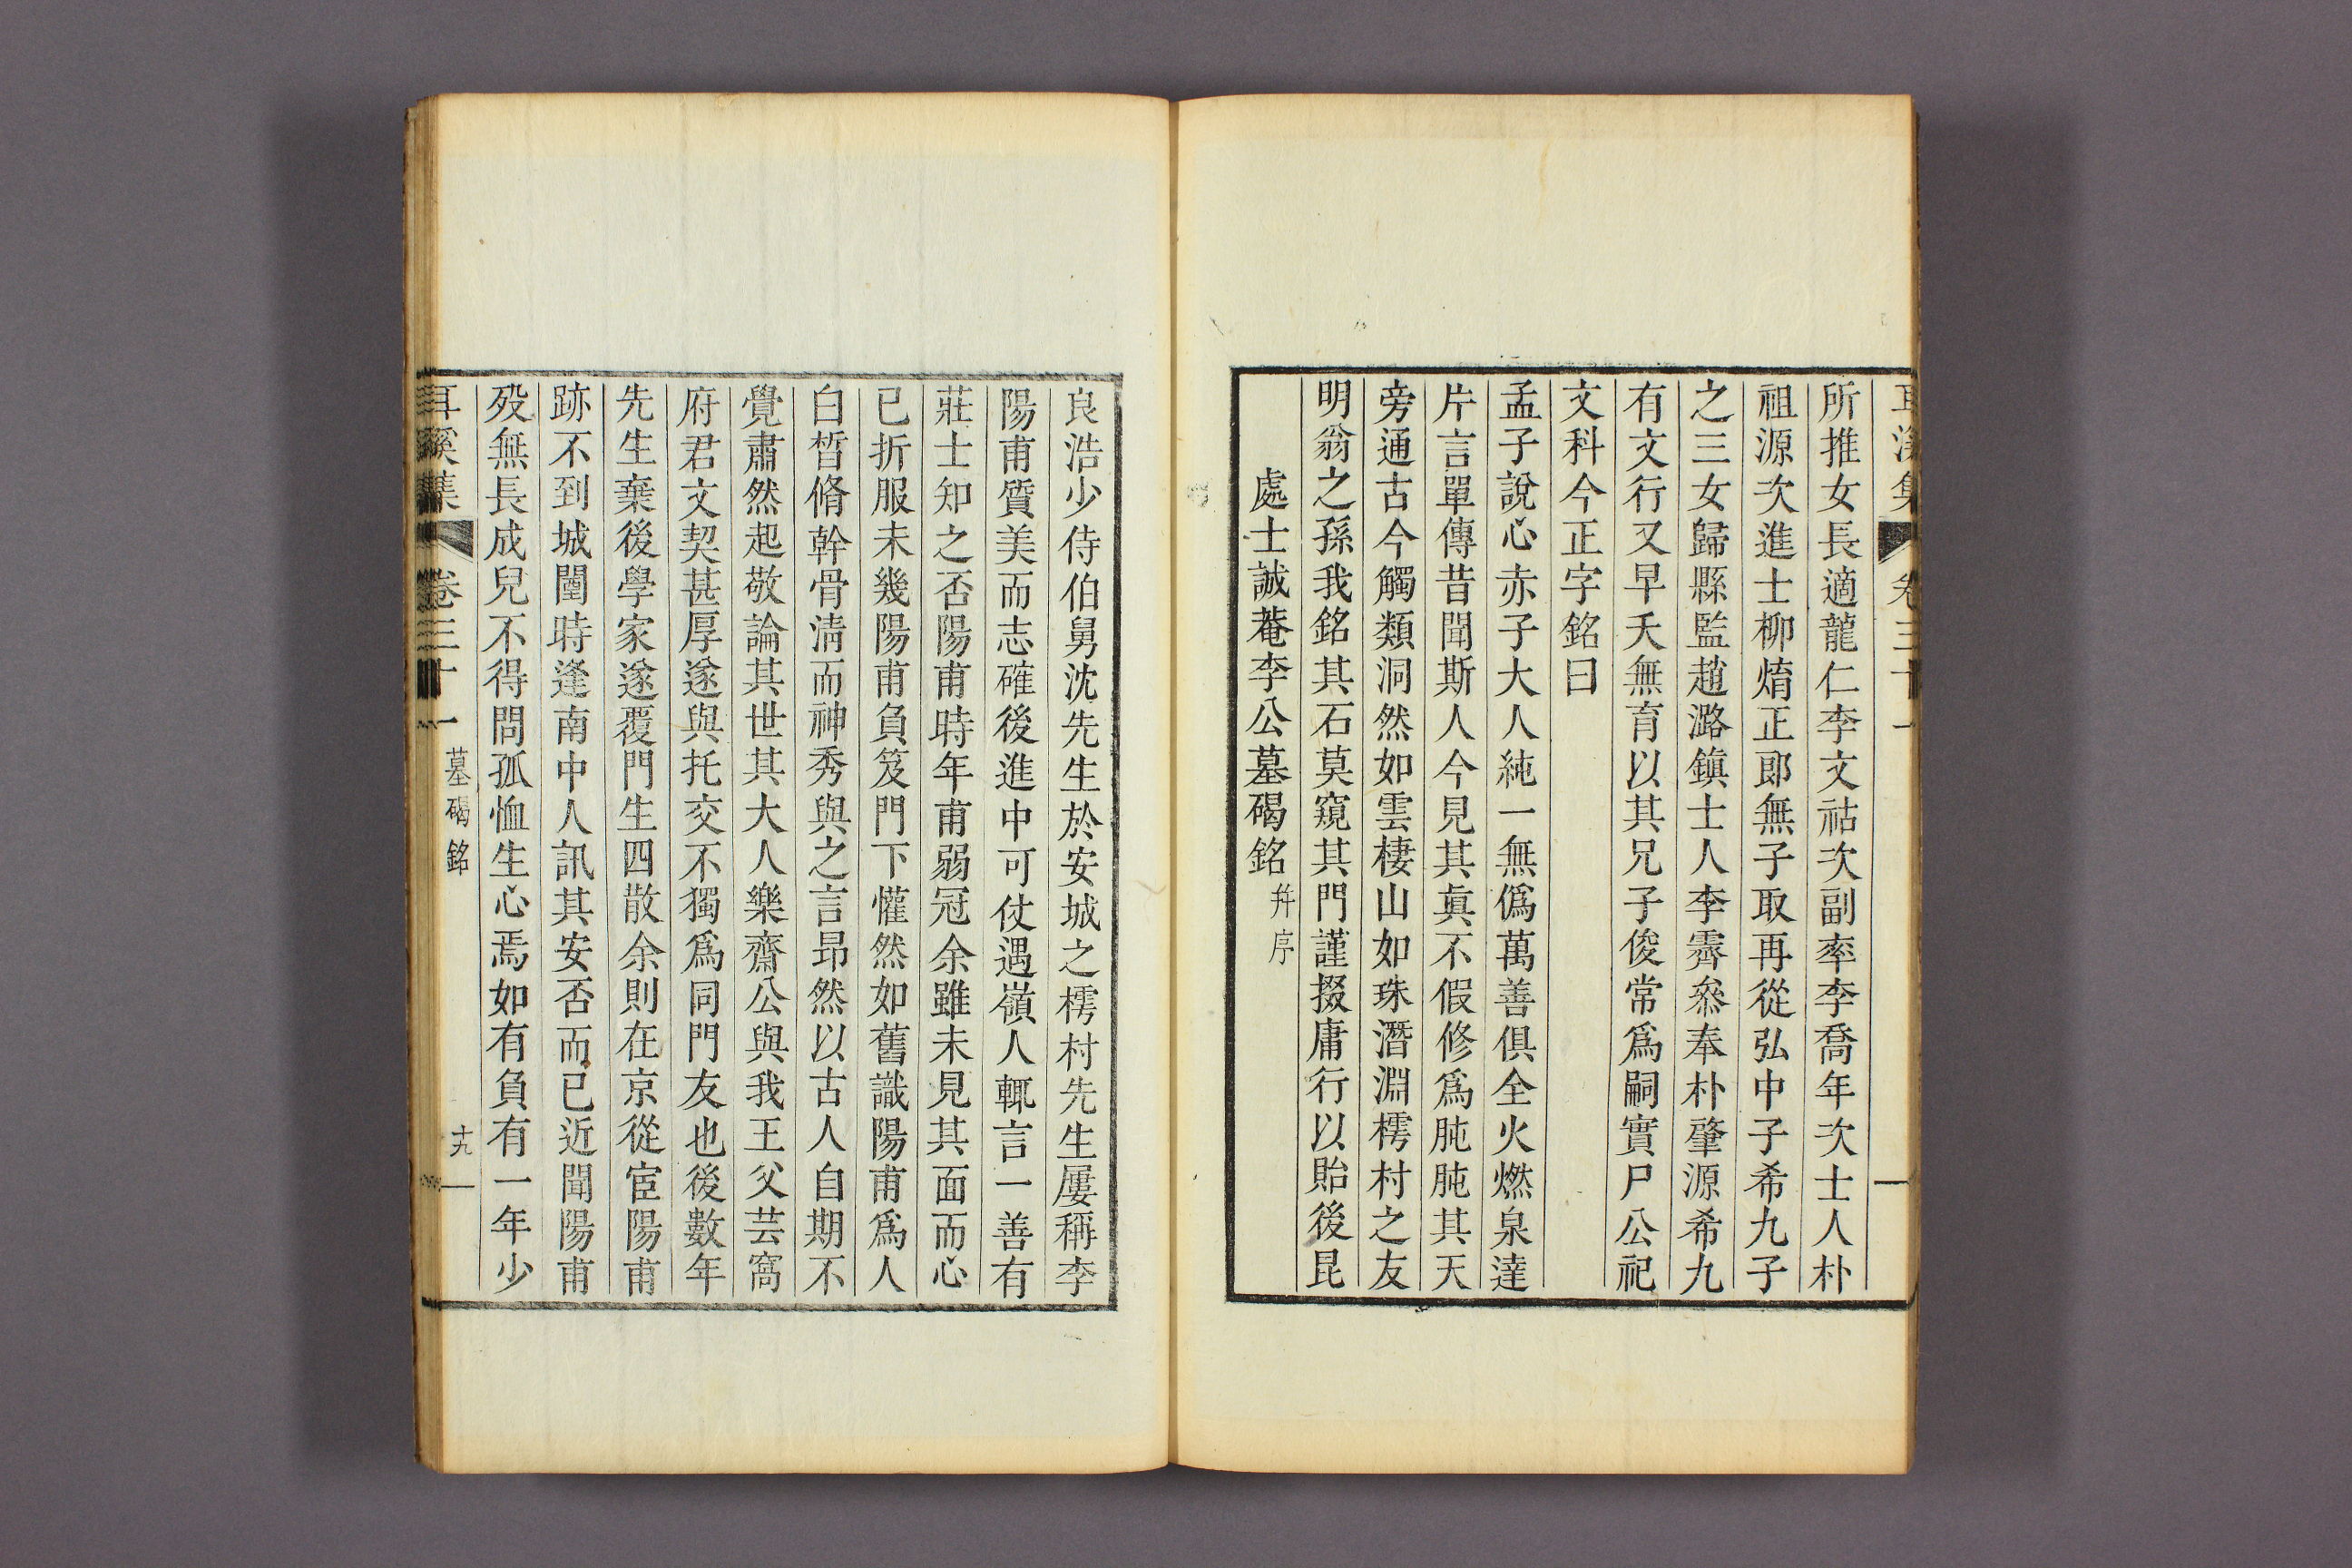 耳溪集 卷三十一
所推女長適龍仁李文祜次副率李喬年次士人朴
祖源次進士柳焴正郎無子取再從弘中子希九子
之三女歸縣監趙潞鎭士人李霽叅奉朴肇源希九
有文行又早夭無育以其兄子俊常爲嗣實尸公祀
文科今正字銘曰
孟子說心赤子大人純一無僞萬善俱全火燃泉達
片言單傳昔聞斯人今見其眞不假修爲肫肫其天
旁通古今觸類洞然如雲棲山如珠潛淵樗村之友
明翁之孫我銘其石莫窺其門謹掇庸行以貽後昆
處士誠菴李公墓碣銘 幷序
良浩少侍伯舅沈先生於安城之樗村先生屢稱李
陽甫質美而志確後進中可仗遇嶺人輒言一善有
莊士知之否陽甫時年甫弱冠余雖未見其面而心
已折服未幾陽甫負笈門下懽然如舊識陽甫爲人
白晳脩幹骨淸而神秀與之言昻然以古人自期不
覺肅然起敬論其世其大人樂齋公與我王父芸窩
府君文契甚厚遂與托交不獨爲同門友也後數年
先生棄後學家遂覆門生四散余則在京從宦陽甫
跡不到城闉時逢南中人訊其安否而已近聞陽甫
歿無長成兒不得問孤恤生心焉如有負有一年少
耳溪集 卷三十一 墓碣銘 十九